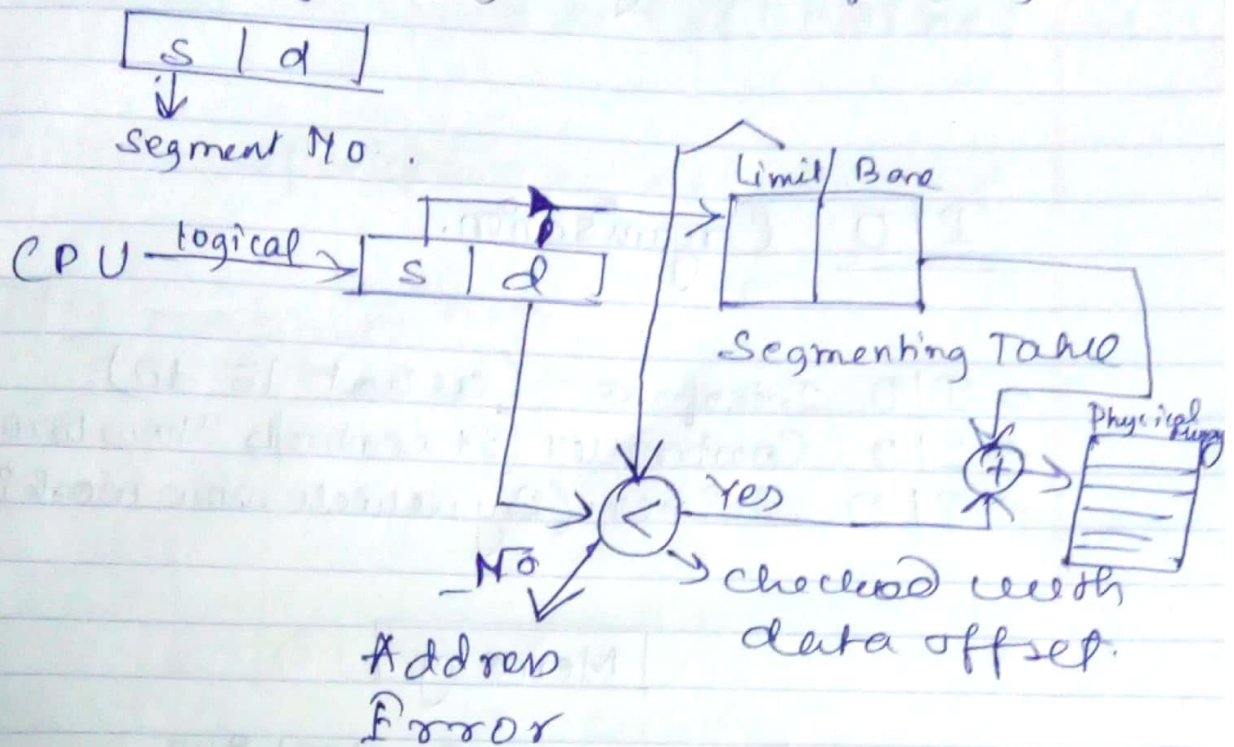 s | d
Segment No.
Limit/ Base
CPU logical s | d
Segmenting Table
Physical
+
< Yes
No
checked with
data offset.
Address
Error